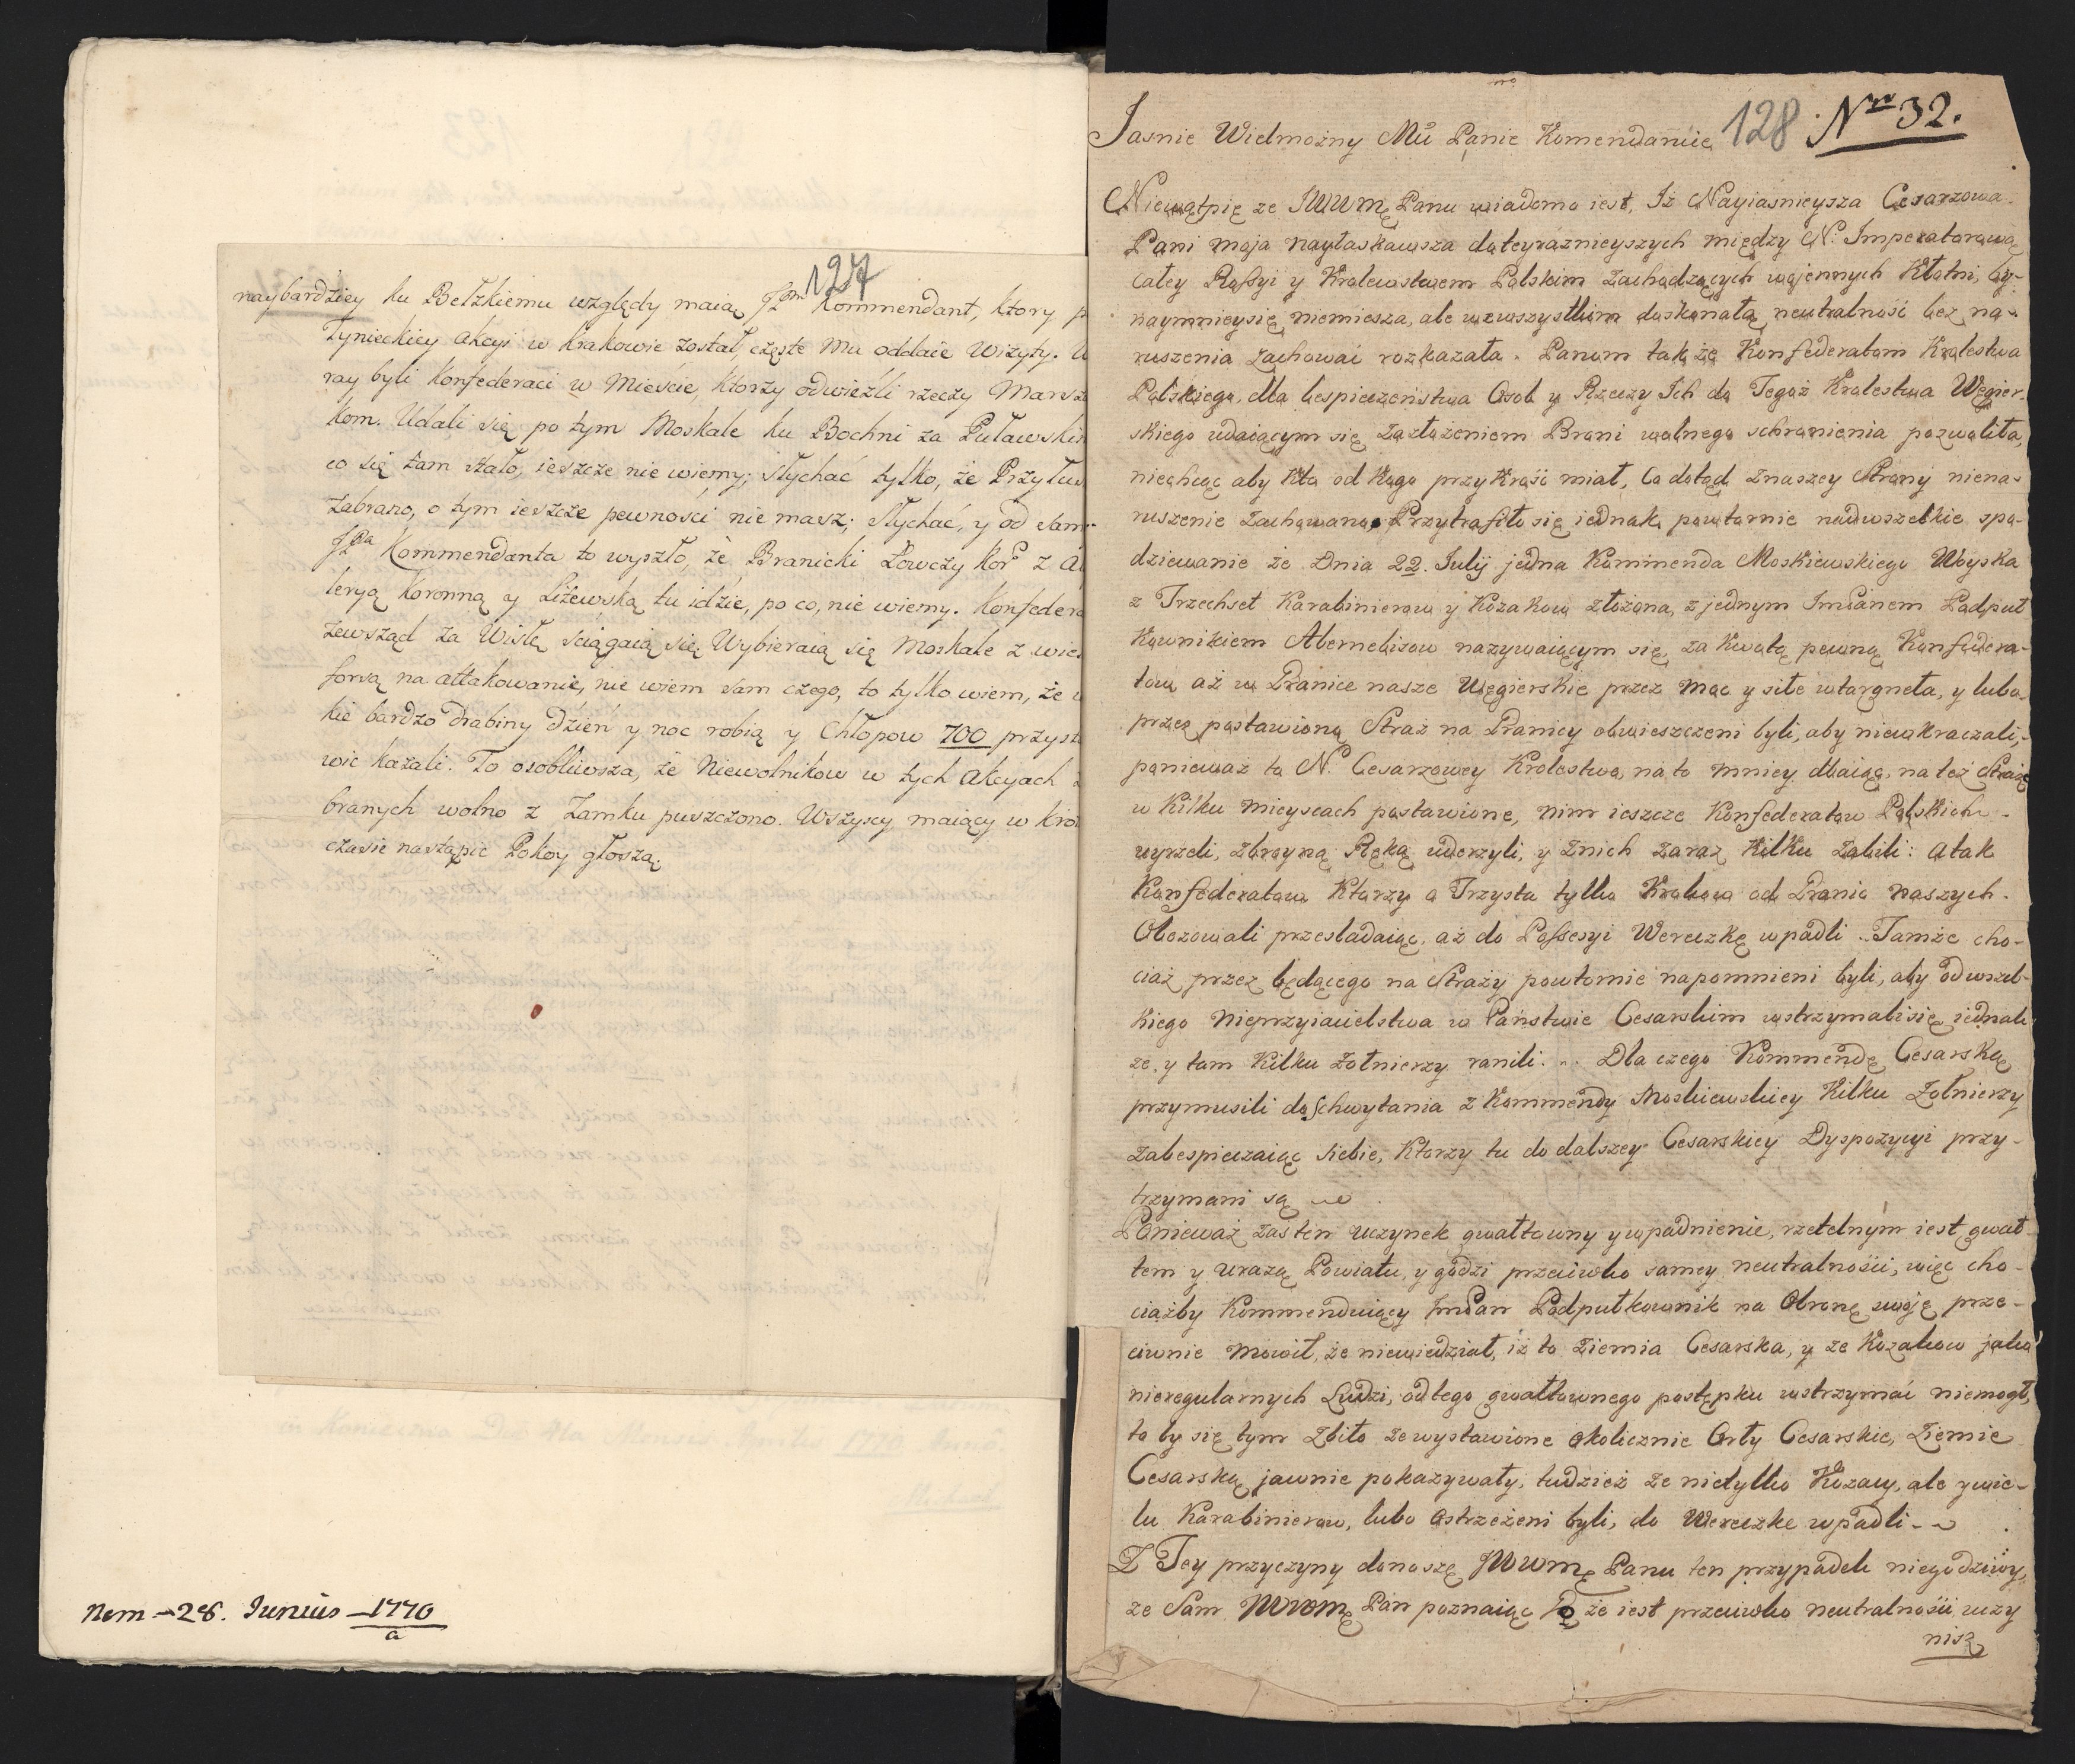 127
naybardziey ku Bełzkiemu względy maią JP. Kommendant, ktory p
Tynieckiey akcyi w Krakowie został, częste mu oddaie wizyty. W
ray byli Konfederaci w Mieście, ktorzy odwieźli rzeczy Marsz
kom. Udali się po tym Moskale ku Bochni za Puławskim
co się tam stało, ieszcze nie wiemy; słychać tylko, że Przyłus
zabrano, o tym ieszcze pewności nie masz; słychać, y od same
JPa Kommendanta to wyszło, że Branicki Łowczy Kor. z A
leryą Koronną y Liżewską tu idzie, po co, nie wiemy. Konfedera
zewsząd za Wisłę sciągaią się. Wybieraią się Moskale z wiel
forsą na attakowanie, nie wiem sam czego, to tylko wiem, że w
kie bardzo drabiny dzień y noc robią y Chłopow 700 przysta
wić kazali. To osobliwsza, że Niewolnikow w tych akcyach z
branych wolno z Zamku puszczono. Wszyscy maiący w krot
czasie nastąpić Pokoy głoszą.
Nem - 28. Junius - 1770
a
128 Nr 32.
Jasnie Wielmożny Mći Panie Komendancie
Niewątpię ze JWWmę Panu wiadomo iest, Iż Nayiasnieysza Cesarzowa
Pani moja nayłaskawsza dateyraznieyszych między N. Imperatorową
całey Rossyi y Krolewstwem Polskim zachodzących wojennych Kłotni, by-
naymnieysię niemiesza, ale wewszystkim doskonałą neutralność bez na-
ruszenia zachować rozkazała. Panom także Konfederatom Krolestwa
Polskiego, dla bespieczeństwa Osob y Rzeczy Ich do Tegoż Krolestwa Węgier-
skiego udaiącym się zazłożeniem Broni wolnego schronienia pozwoliła,
niechcąc aby kto od kogo przykrość miał, Co dotąd znaszey Strony niena-
ruszenie zachowano. Przytrafiło się iednak powtornie nadwszelkie spo-
dziewanie że Dnia 22. Julij jedna Kommenda Moskiewskiego Woyska
z Trzechset Karabinierow y Kozakow złożona, z jednym ImPanem Podpuł
kownikiem Abernebisow nazywaiącym się, za kwotą pewną Konfedera-
tow aż w Granice nasze Węgierskie przez moc y siłe wtargneła, y lubo
przez postawioną Straż na Granicy obwieszczeni byli, aby niewkraczali,
ponieważ to N. Cesarzowey Krolestwo, na to mniey dbaiąc, na też Straż
w kilku mieyscach postawione, nim ieszcze Konfederatow Polskich
uyrzeli, zbroyną Ręką uderzyli, y znich zaraz kilku zabili: a tak
Konfederatow ktorzy o Trzysta tylko Krokow od Granic naszych
Obozowali przesladaiąc, aż do Possesyi Wereczkę wpadli. Tamże cho-
ciaż przez będącego na Straży powtornie napomnieni byli, aby od wszel-
kiego Nieprzyiacielstwa w Państwie Cesarskim wstrzymali się, iednak
ze y tam kilku żołnierzy ranili... Dla czego Kommendę Cesarską
przymusili do schwytania z Kommendy Moskiewskiey kilku Zołnierzy
zabespieczaiąc siebie, ktorzy tu do dalszey Cesarskiey Dyspozycyi przy-
trzymani są
Ponieważ zaś ten uczynek gwałtowny y wpadnienie, rzetelnym iest gwał
tem y urazą Powiatu, y godzi przeciwko samey neutralności, więc cho-
ciażby Kommenduiący ImPan Podpułkownik na Obronę swoję prze-
ciwnie mowił, że niewiedział, iż to Ziemia Cesarska, y ze Kozakow jako
nieregularnych Ludzi, od tego gwałtownego postępku wstrzymać niemogł,
to by się tym zbiło ze wystawione okolicznie Orły Cesarskie, Ziemie
Cesarską jawnie pokazywały, tudzież ze nietylko Kozacy, ale y wie-
lu Karabinierow, lubo ostrzeżeni byli, do Wereczke wpadli
Z Tey przyczyny donoszę JWWmę Panu ten przypadek niegodziwy,
ze Sam JWWmę Pan poznaiąc że iest przeciwko neutralności uczy
nisz